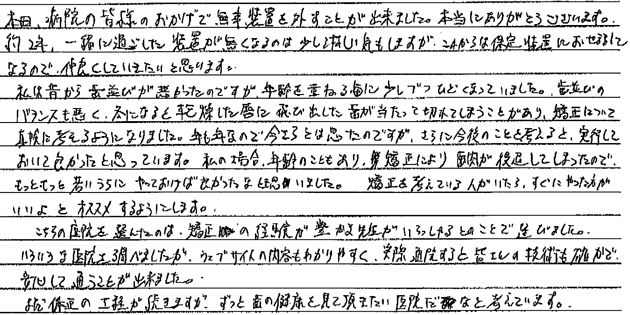 本日、病院の皆様のおかげで無事装置を外すことが出来ました。本当にありがとうございます。
約2年、一緒に過ごした装置が無くなるのは少し寂しい気もしますが、これからは保定装置にお世話に
なるので、仲良くしていきたいと思います。
私は昔から歯並びが悪かったのですが、年齢を重ねる毎に少しずつひどくなっていました。歯並びの
バランスも悪く、冬になると乾燥した唇に飛び出した歯が当たって切れてしまうことがあり、矯正について
真険に考えるようになりました。年も年なので今さらとは思ったのですが、さらに今後のことを考えると、実行して
おいて良かったと思っています。私の場合、年齢のこともあり、矯正により歯肉が後退してしまったので、
もっともっと若いうちにやっておけば良かったなと思いました。矯正を考えている人がいたら、すぐにやった方が
いいよとオススメするようにします。
こちらの医院を選んだのは、矯正の経験が豊かな先生がいらっしゃるとのことで選びました。
いろいろな医院を調べましたが、ウェブサイトの内容もわかりやすく、実際通院すると皆さんの技術も確かで、
安心して通うことが出来ました。
まだ保定の工程が続きますが、ずっと歯の健康を見て頂きたい医院だなと考えています。